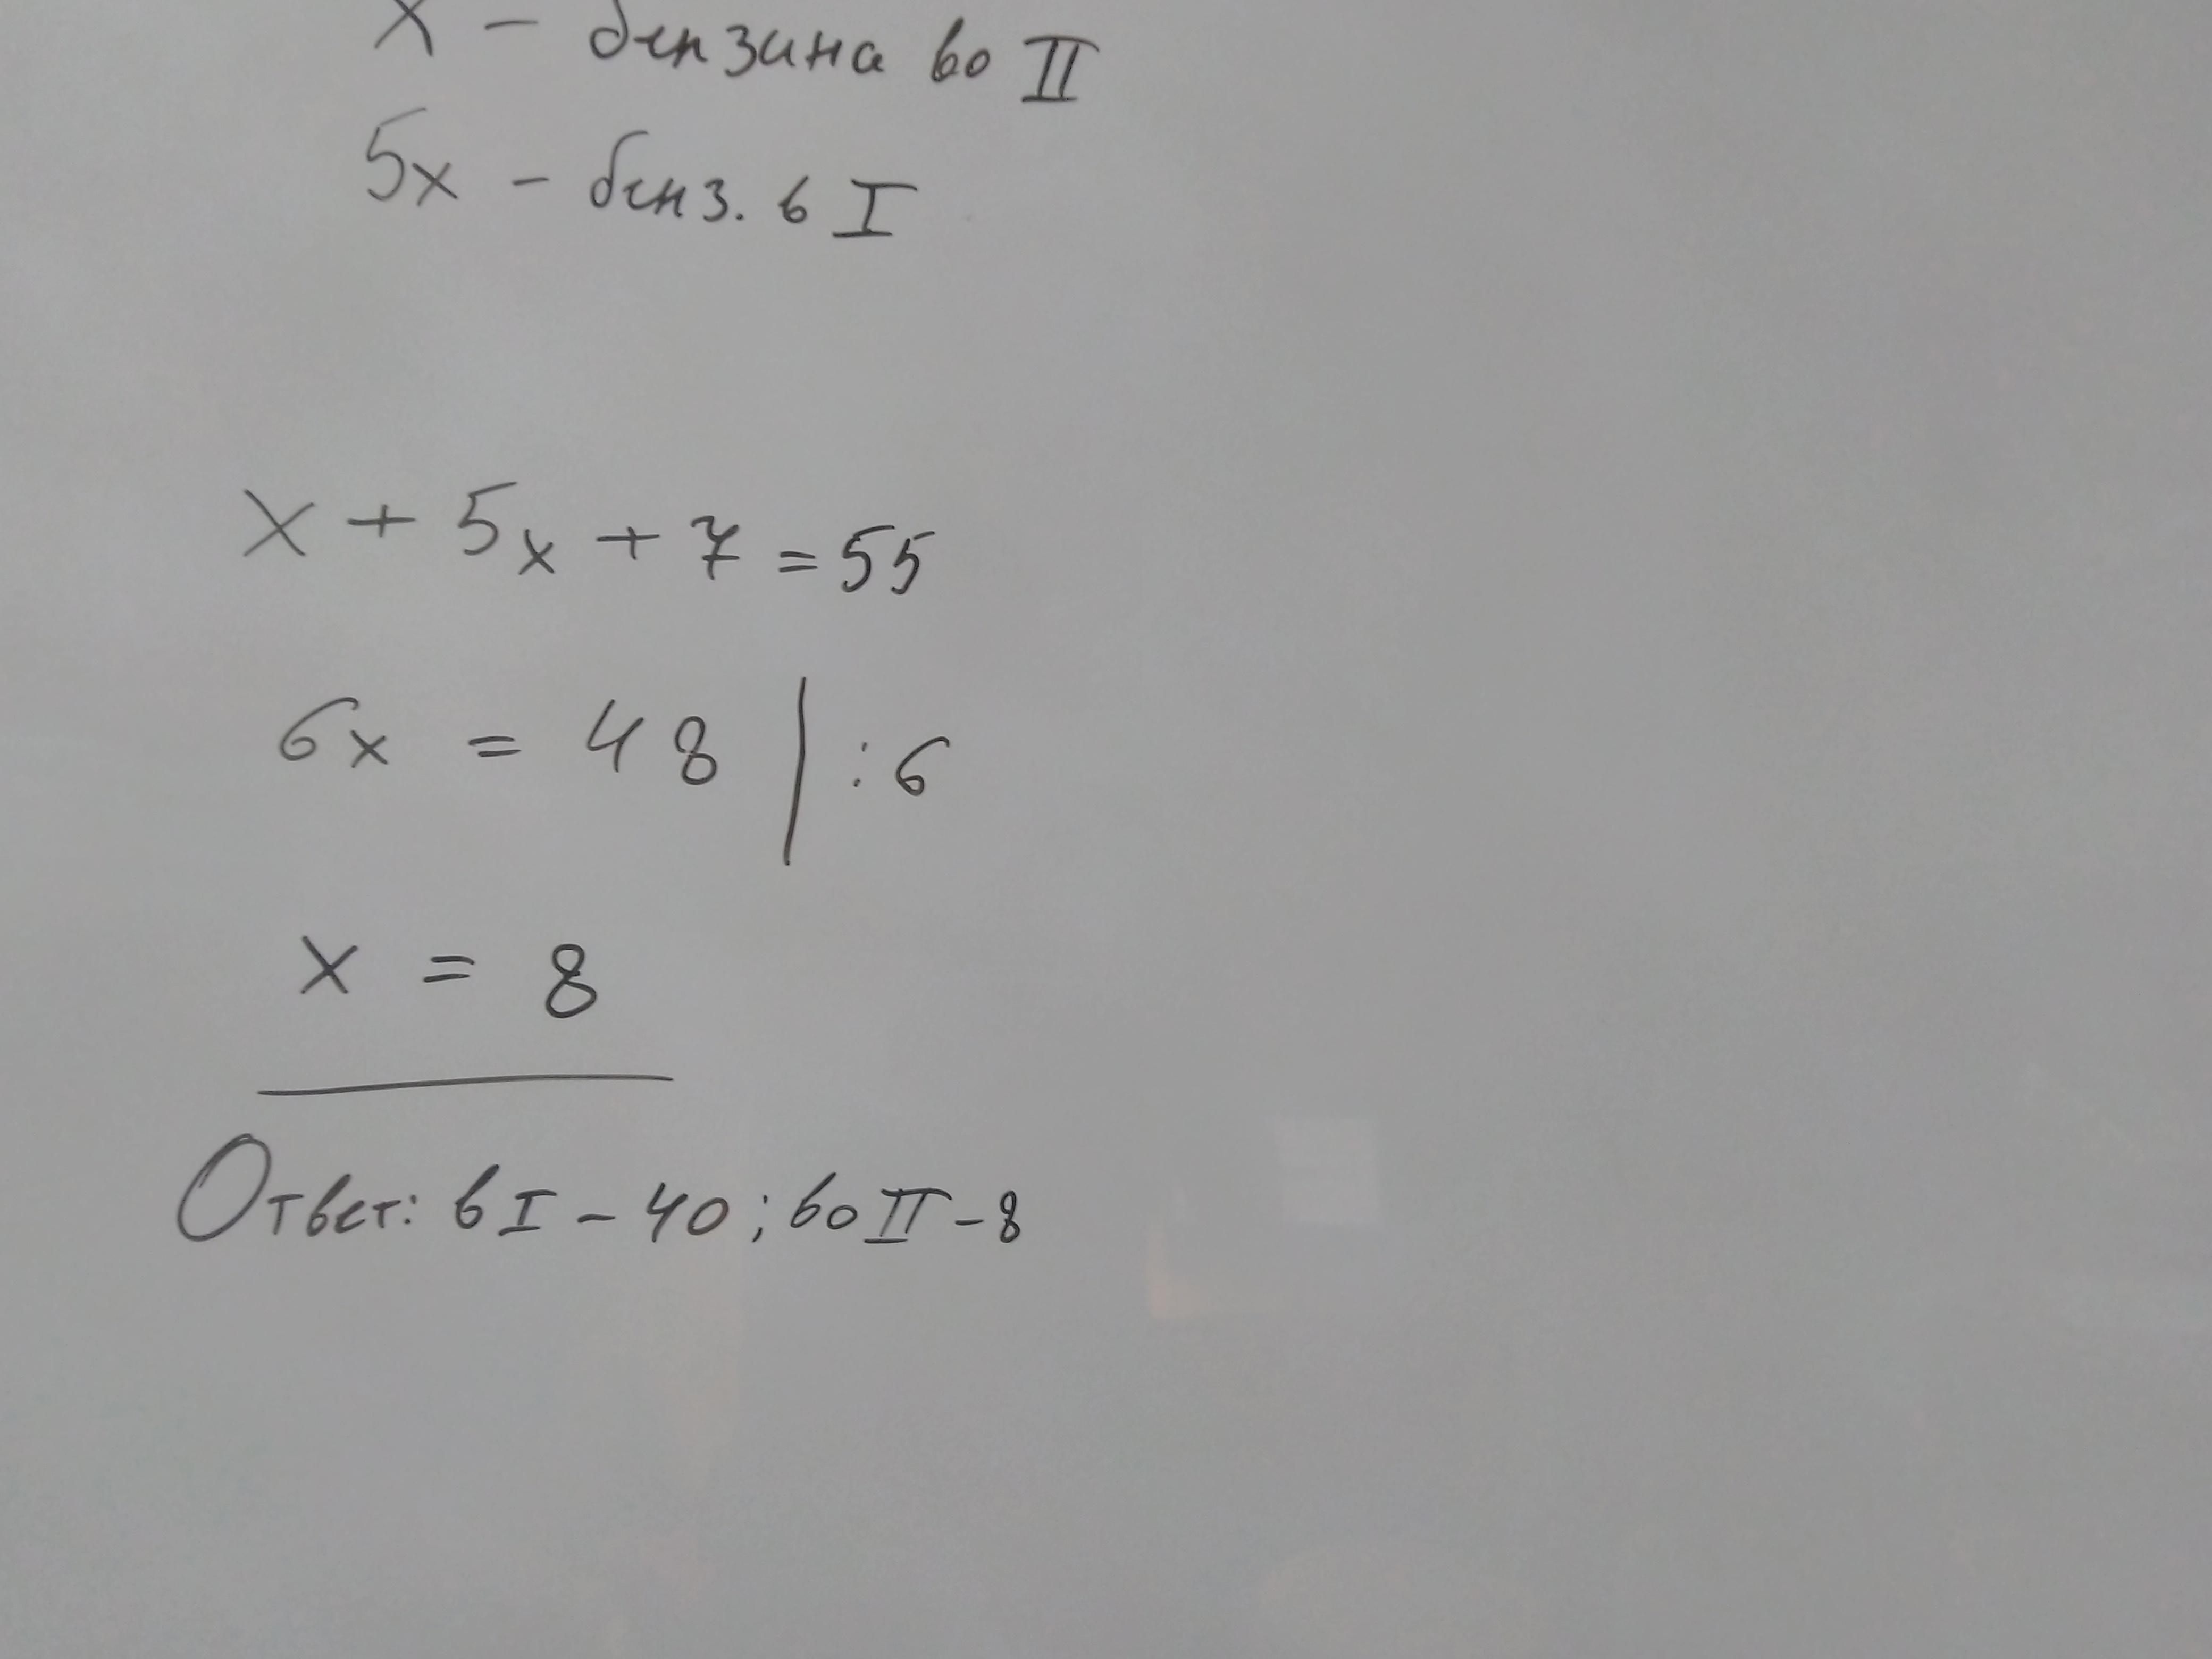 x - бензина во II
5x - бенз. в I
x + 5x + 7 = 55
6x = 48 | : 6
x = 8
Ответ: в I - 40; во II - 8